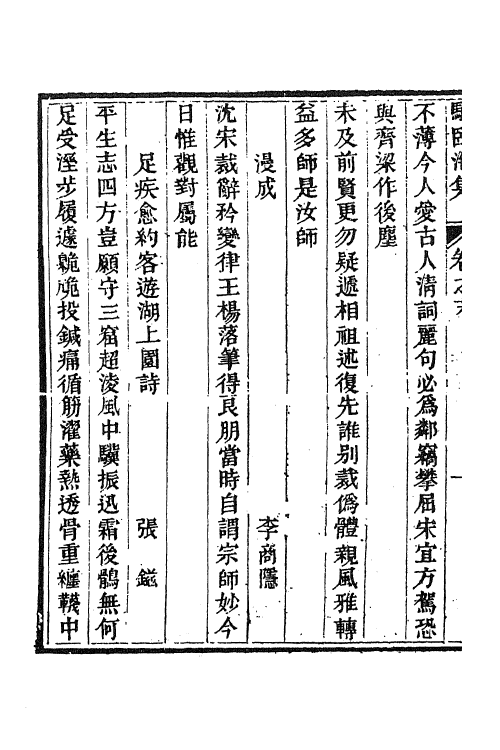 不薄今人愛古人清詞麗句必爲鄰竊攀屈宋宜方駕恐
與齊梁作後塵
未及前賢更勿疑遞相祖述復先誰別裁僞體親風雅轉
益多師是汝師
漫成 李商隱
沈宋裁辭矜變律王楊落筆得良朋當時自謂宗師妙今
日惟觀對屬能
足疾愈約客遊湖上園詩 張鎡
平生志四方豈願守三窟超淩風中驥振迅霜後鶻無何
足受溼步履遽臲卼投鍼痛循筋濯藥熱透骨重纏韈中